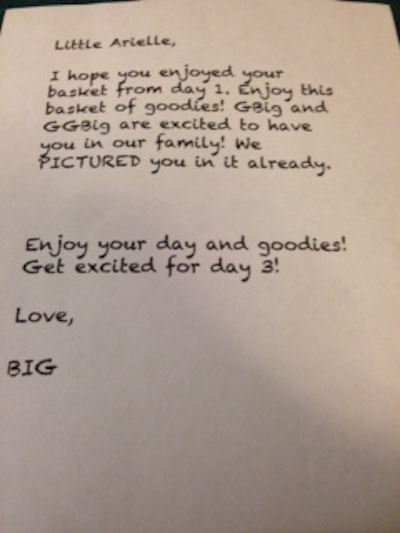 Little Arielle,
I hope you enjoyed your
basket from day 1. Enjoy this
basket of goodies! GBig and
GGBig are excited to have
you in our family! We
PICTURED you in it already.
Enjoy your day and goodies!
Get excited for day 3!
Love,
BIG